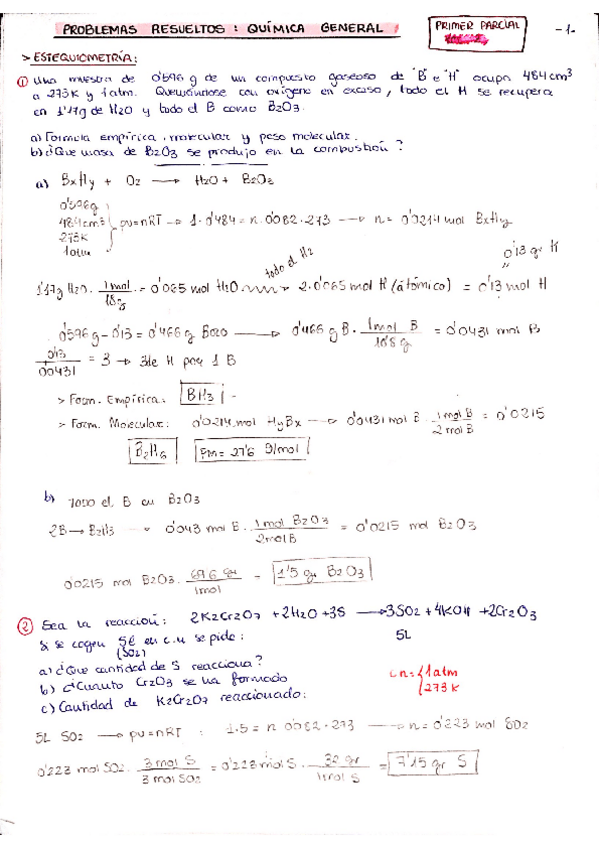 PROBLEMAS RESUELTOS: QUÍMICA GENERAL
PRIMER PARCIAL
-1-
> ESTEQUIOMETRÍA:
① Una muestra de 0'596 g de un compuesto gaseoso de B e H ocupa 484 cm³
a 273K y 1 atm. Quemándose con oxígeno en exceso, todo el H se recupera
en 1'17g de H2O y todo el B como B2O3.
a) Formula empírica, molecular y peso molecular.
b) ¿Que masa de B2O3 se produjo en la combustión?
a) BxHy + O2 → H2O + B2O3
0'596g
484cm³
273K
1atm
pv=nRT → 1·0'484 = n·0'082·273 → n = 0'0214 mol BxHy
todo el H2
0'13 gr H
1'17g H2O · 1mol/18g = 0'065 mol H2O → 2·0'065 mol H (átómico) = 0'13 mol H
0'596g - 0'13 = 0'466g Boro → 0'466 g B · 1mol B/10'8 g = 0'0431 mol B
0'13/0'0431 = 3 → 3 de H por 1 B
> Form. Empírica: BH3
> Form. Molecular: 0'0214 mol HyBx → 0'0431 mol B · 1mol B/2mol B = 0'0215
B2H6 Pm = 27'6 g/mol
b) Todo el B en B2O3
2B → B2H3 0'043 mol B · 1mol B2O3/2mol B = 0'0215 mol B2O3
0'0215 mol B2O3 · 69'6 gr/1mol = 1'5 gr B2O3
② Sea la reacción: 2K2Cr2O7 + 2H2O + 3S → 3SO2 + 4KOH + 2Cr2O3
Si se cogen 5ℓ en c.n se pide: 5L
(SO2)
a) ¿Que cantidad de S reacciona?
b) ¿Cuanto Cr2O3 se ha formado
c) Cantidad de K2Cr2O7 reaccionado:
cn = {1atm
273K
5L SO2 → pv=nRT : 1·5 = n 0'082·273 → n = 0'223 mol SO2
0'223 mol SO2 · 3 mol S/3 mol SO2 = 0'223 mol S · 32 gr/1mol S = 7'15 gr S